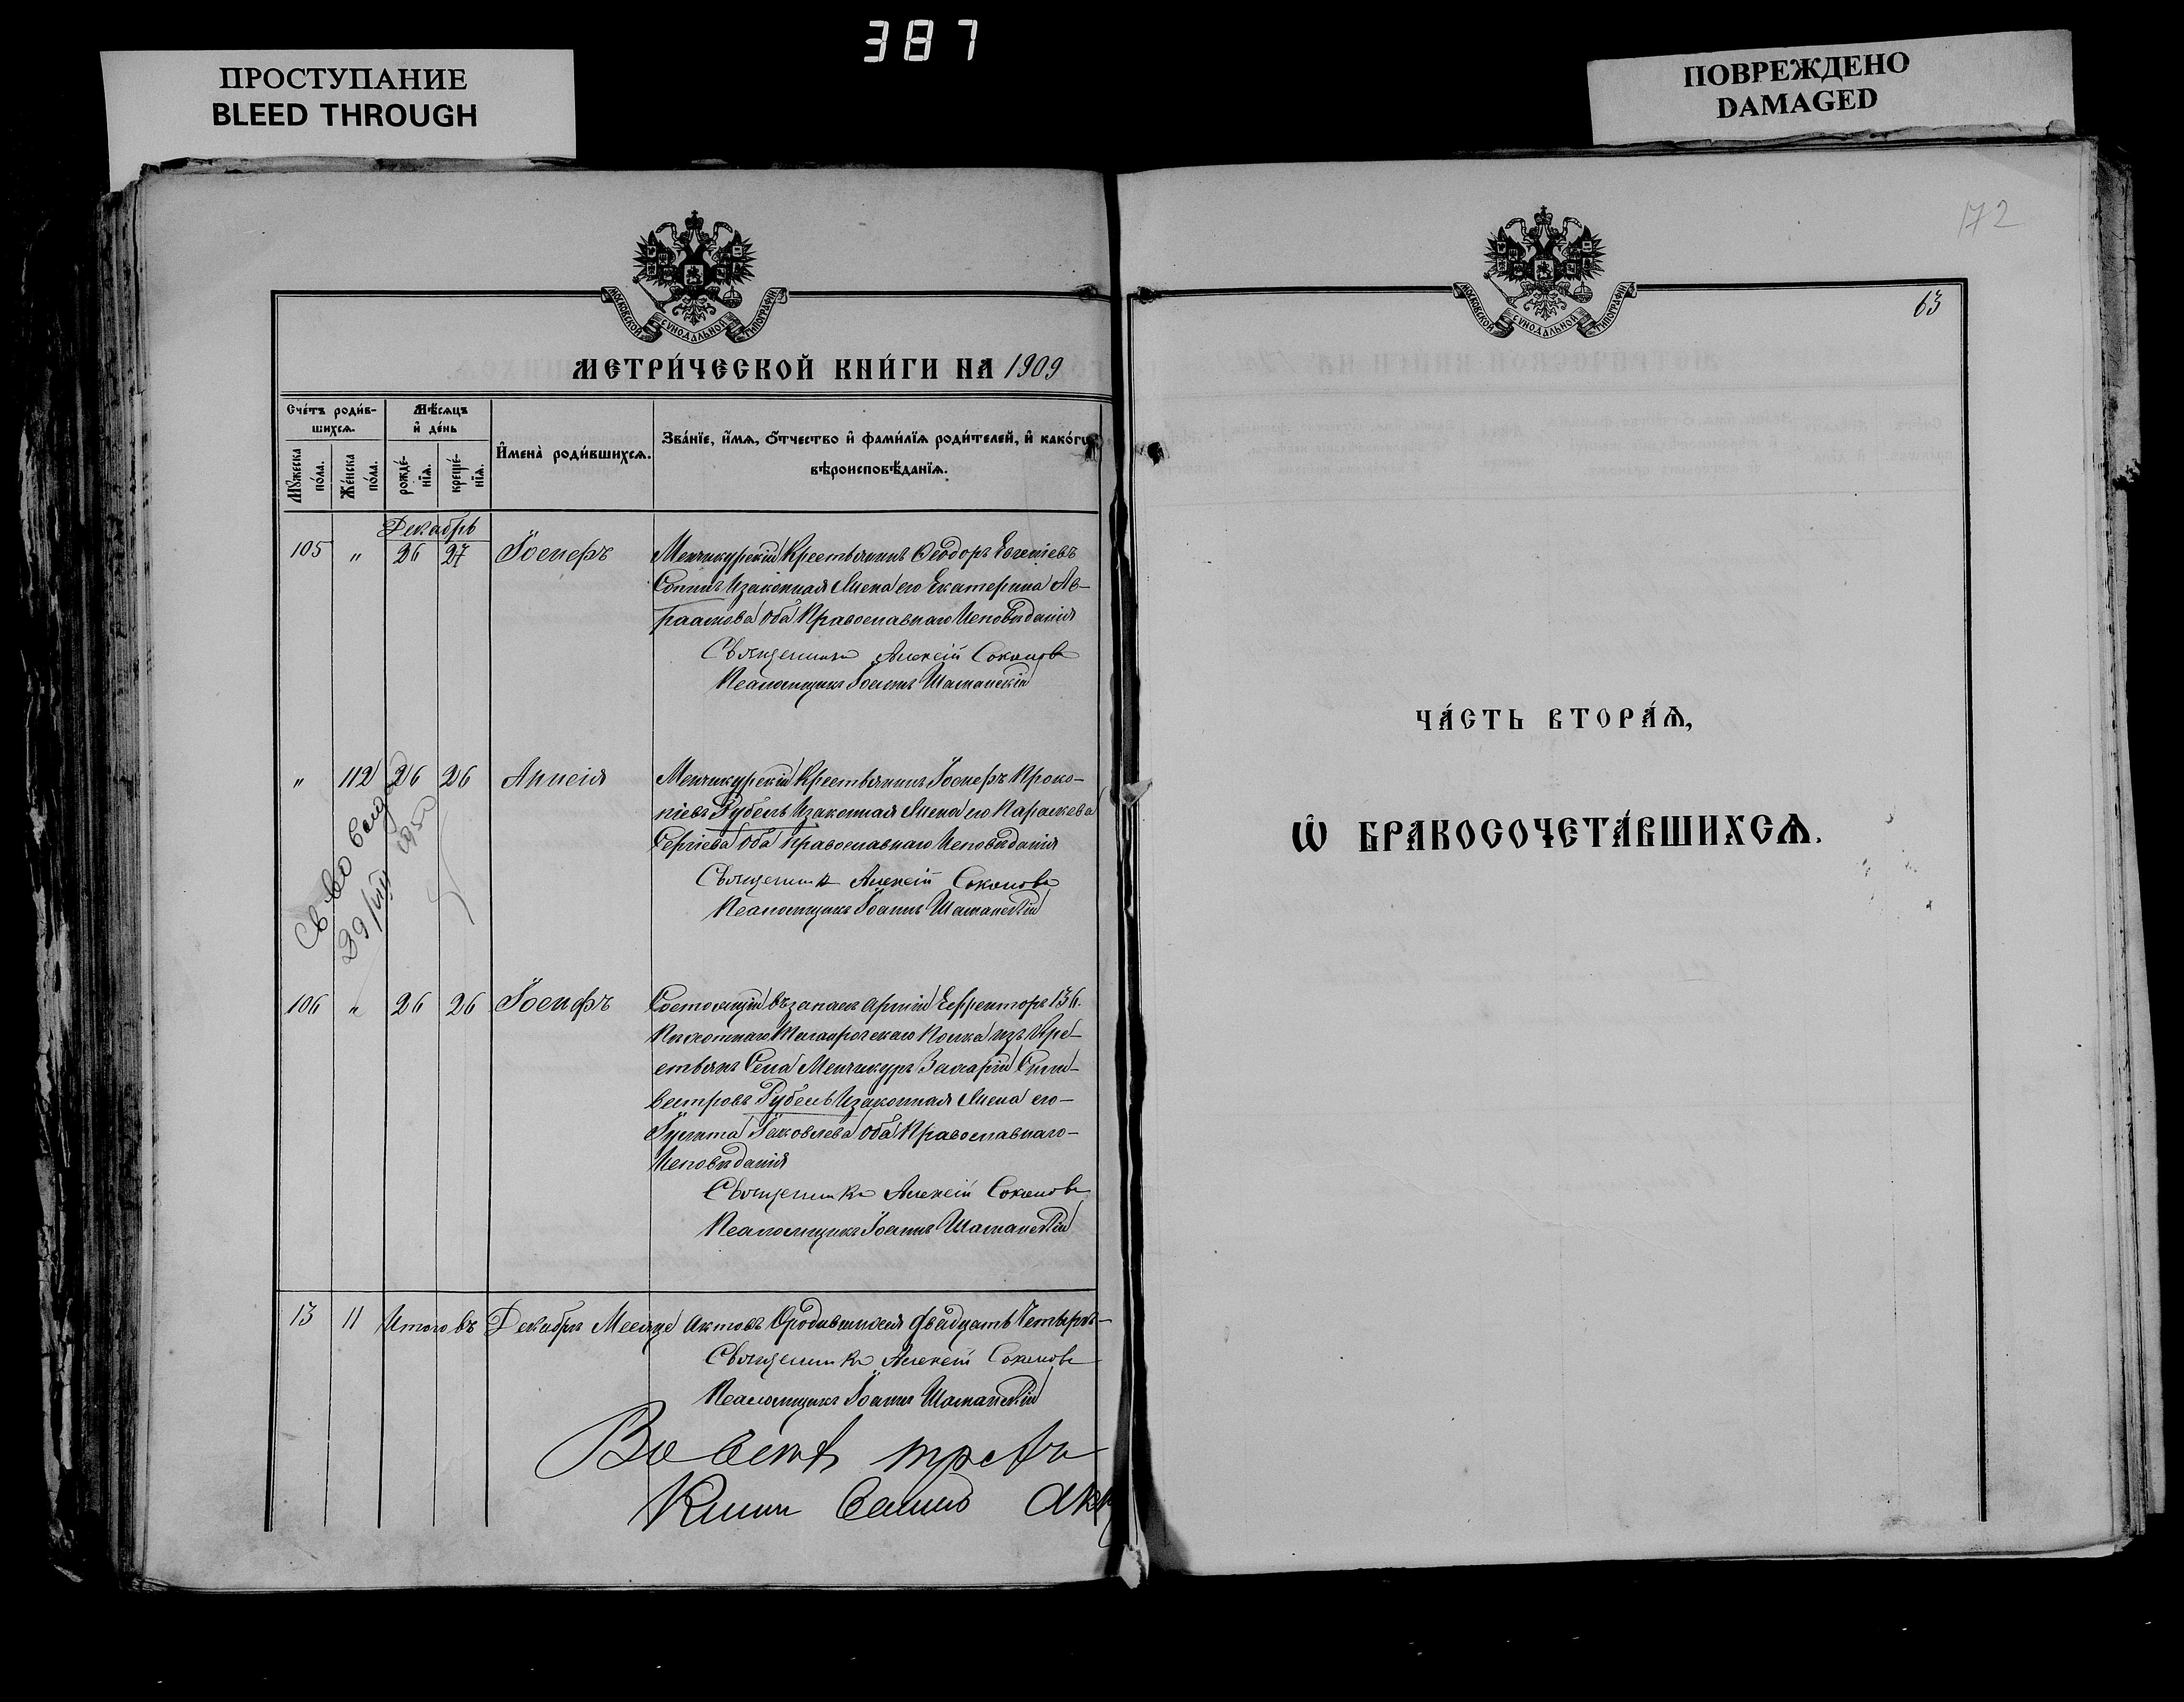 387
ПРОСТУПАНИЕ
BLEED THROUGH
ПОВРЕЖДЕНО
DAMAGED
172
МОСКОВСКОЙ СѴНОДАЛЬНОЙ ТИПОГРАФІИ
МЕТРИ́ЧЕСКОЙ КНИ́ГИ НА 1909
Сче́тъ роди́в-
шихсѧ.
Мѣ́сѧцъ
и҆ де́нь
Мꙋ́жеска
по́ла.
Же́нска
по́ла.
рожде́-
нїѧ.
креще́-
нїѧ.
И҆мена̀ роди́вшихсѧ.
Зва́нїе, и҆́мѧ, ѻ҆́тчество и҆ фами́лїѧ роди́телей, и҆ како́гѡ
вѣроисповѣ́данїѧ.
Декабрь
105 " 26 27 Іосифъ
Менчикурскій Крестьянинъ Ѳеодоръ
Изаконная Жена его Екатерина Ав-
раамова Оба Православнаго Исповѣданія
Священникъ Алексій Соколовъ
Псаломщикъ Іоаннъ Шаманскій
" 112 26 26 Анисія
Менчикурскій Крестьянинъ Іосифъ Проко-
піевъ Рубель Изаконная Жена его Параскева
Сергіева Оба Православнаго Исповѣданія
Священникъ Алексій Соколовъ
Псаломщикъ Іоаннъ Шаманскій
Св-во
29/VII
106 " 26 26 Іосифъ
Состоящій въ запасѣ арміи Ефрейторъ 136.
Пѣхотнаго Таганрогскаго Полка изъ Кре-
стьянъ Села Менчикуръ Захарій Силь-
вестровъ Рубель Изаконная Жена его
Іулита Іаковлева Оба Православнаго
Исповѣданія
Священникъ Алексій Соколовъ
Псаломщикъ Іоаннъ Шаманскій
13 11 Итого въ Декабрѣ Месяце Актовъ Ородившихся Двадцать Четыре
Священникъ Алексій Соколовъ
Псаломщикъ Іоаннъ Шаманскій
МОСКОВСКОЙ СѴНОДАЛЬНОЙ ТИПОГРАФІИ
63
ЧА́СТЬ ВТОРА́Ѧ,
Ѡ҆ БРАКОСОЧЕТА́ВШИХСѦ.